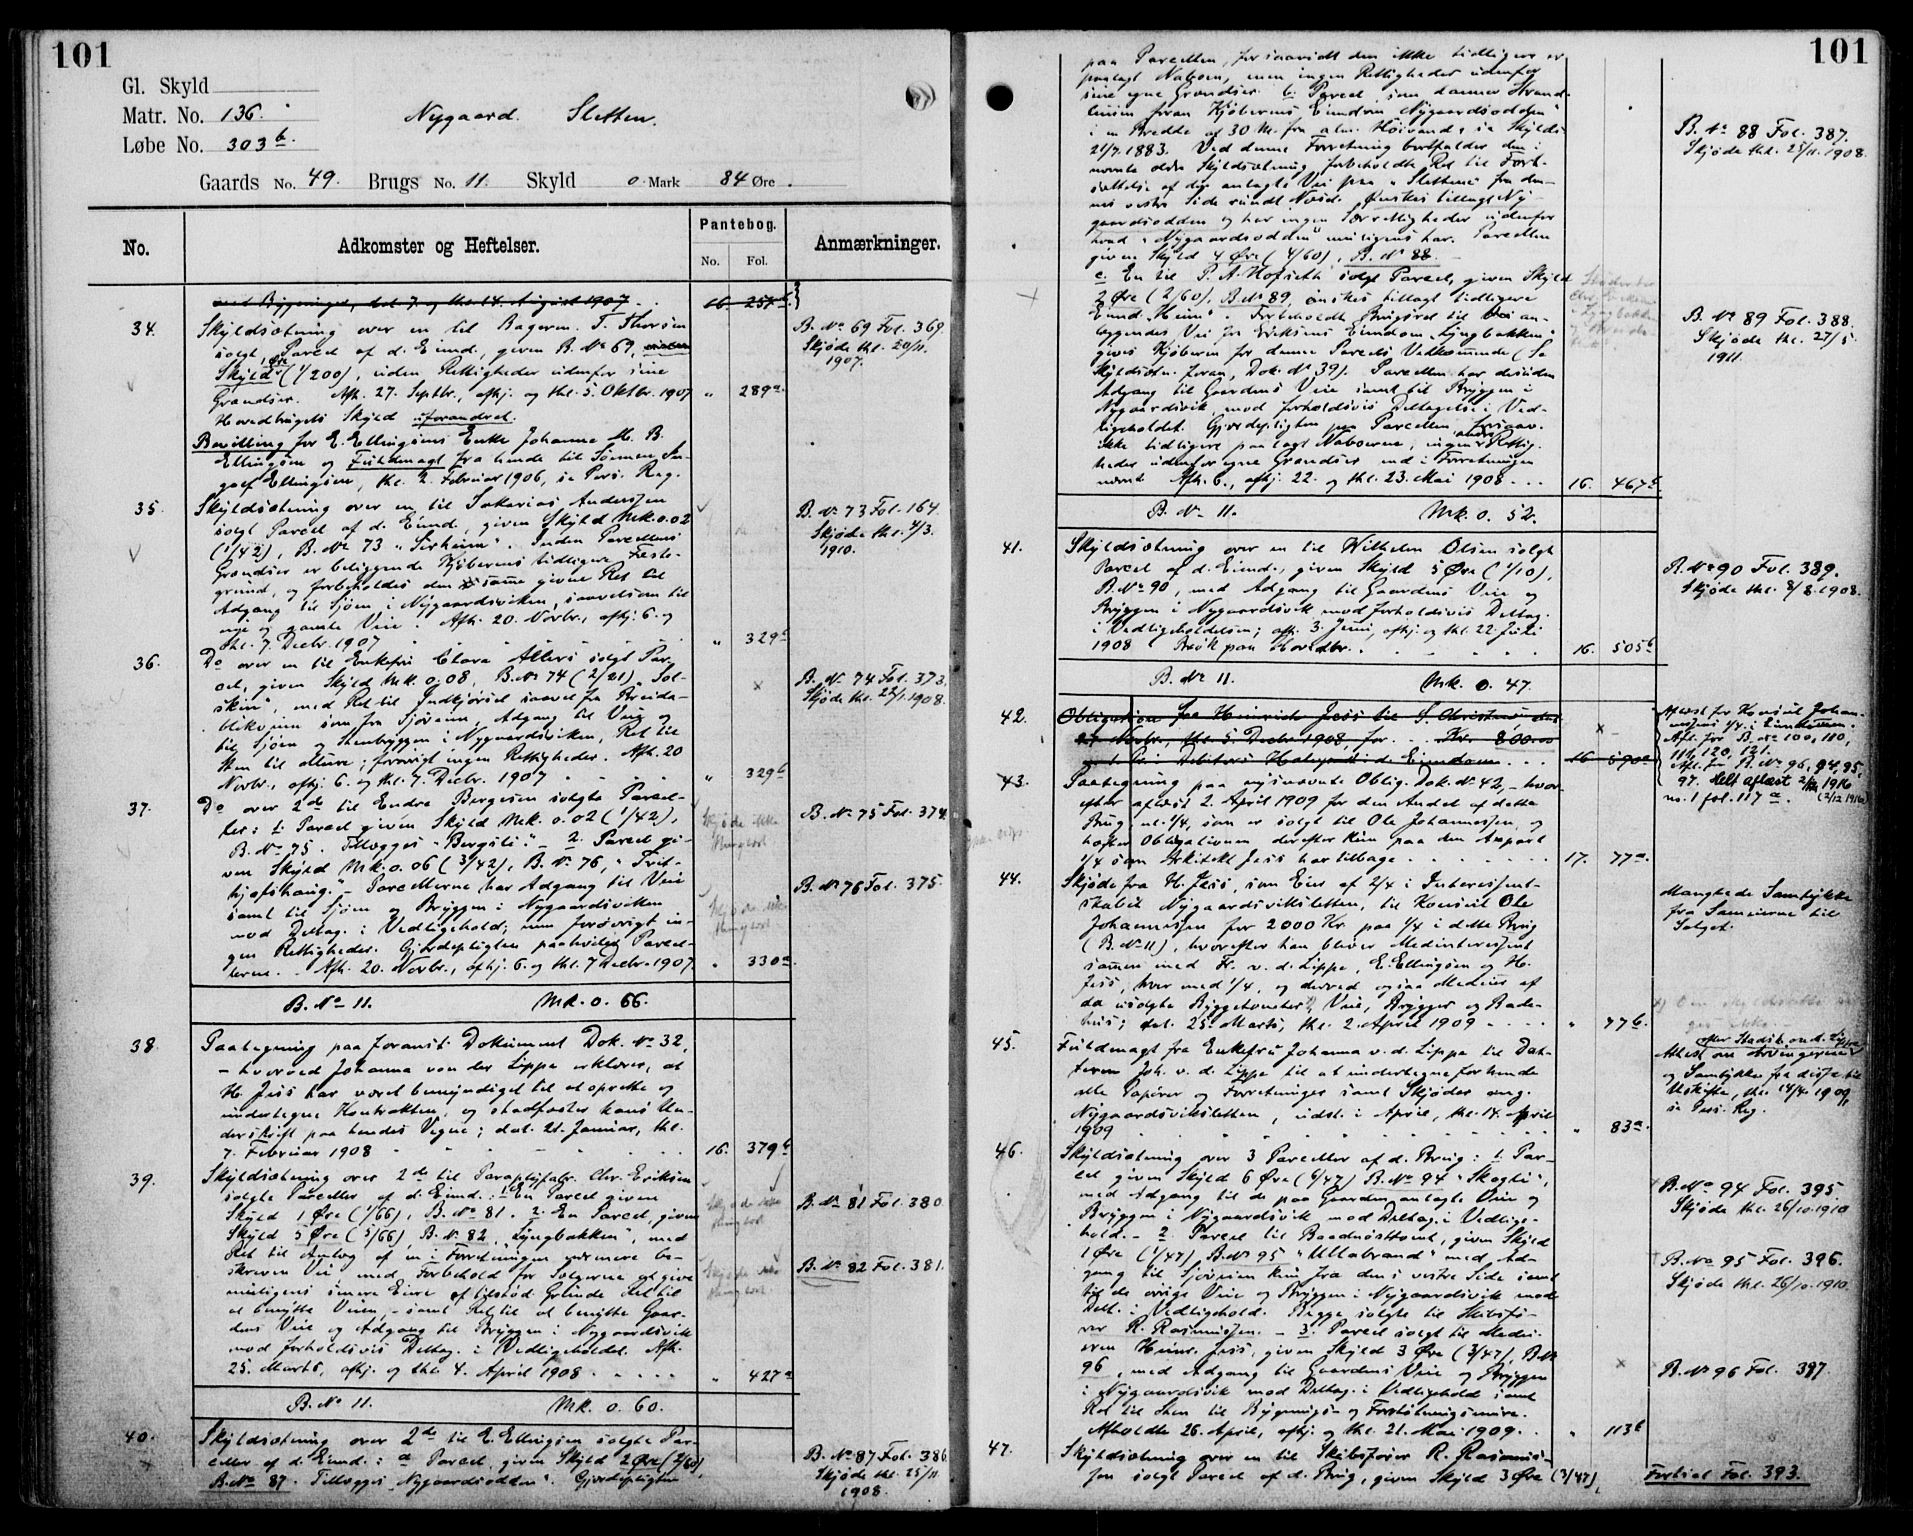 101
Gl. Skyld
Matr. No. 136.
Løbe No. 303 b.
Nygaard. Sletten.
Gaards No. 49. Brugs No. 11. Skyld 0 Mark 84 Øre.
No.
Adkomster og Heftelser.
Pantebog.
No. Fol.
Anmærkninger.
med Bygninger, dat. 7. og thl. 14. August 1907 16 251
34. Skyldsætning over en til Bagerm. T. Thorsen
solgt Parcel af d. Eiend., given B. No 69,
Skyld 1 Øre (1/200), uden Rettigheder udenfor sine
Grændser. Afh. 27. Septbr., afhj. og thl. 5. Oktbr. 1907 " 289 a
Hovedbrugets Skyld uforandret.
B. No 69 Fol. 369.
Skjøde thl. 20/11.
1907.
Bevilling for E. Ellingsens Enke Johanne M. B.
Ellingsen og Fuldmagt fra hende til Sønnen In-
golf Ellingsen, thl. 2. Februar 1906, se Pers. Reg.
35. Skyldsætning over en til Sakarias Anderssen
solgt Parcel af d. Eiend., given Skyld Mk. 0.02
(1/42), B. No 73 "Sirheim". Inden Parcellens
Grændser er beliggende Kjøberens tidligere Fæste-
grund, og forbeholdes den samme givne Ret til
Adgang til Sjøen i Nygaardsviken, saavelsom til
nye og gamle Veie. Afh. 20. Novbr., afhj. 6. og
thl. 7. Decbr. 1907 " 329 b
B. No 73 Fol. 164.
Skjøde thl. 4/3.
1910.
36. Do over en til Enkefru Clara Allers solgt Par-
cel, given Skyld Mk. 0.08, B. No 74 (2/21), "Sol-
skin", med Ret til Indkjørsel saavel fra
som fra Sjøveien, Adgang til Veie og
til Sjøen og Stenbryggen i Nygaardsviken, Ret til
Sten til ; forøvrigt ingen Rettigheder. Afh. 20
Novbr., afhj. 6. og thl. 7. Decbr. 1907 " 329 b
B. No 74 Fol. 373.
Skjøde thl. 22/1.1908.
37. Do over 2de til Endre Bergesen solgte Parcel-
ler: 1. Parcel given Skyld Mk. 0.02 (1/42),
B. No 75. Tillægges "Bergsli". - 2. Parcel gi-
ven Skyld Mk. 0.06 (3/42), B. No 76, "Frit-
hjofshaug". - Parcellerne har Adgang til Veie
samt til Sjøen og Bryggen i Nygaardsviken
mod Deltag. i Vedligehold; men forøvrigt in-
gen Rettigheder. Gjerdepligten paahviler Parcel-
lerne. - Afh. 20. Novbr., afhj. 6. og thl. 7 Decbr. 1907. " 330 a
Skjøde ikke
thinglyst
B. No 75 Fol. 374.
B. No 76 Fol. 375.
Skjøde ikke
thinglyst
B. No 11. Mk. 0. 66.
38. Paategning paa foranst. Dokument Dok. No 32,
- hvorved Johanna von der Lippe erklærer, at
H. Jess har været bemyndiget til at oprette og
undertegne Kontrakten, og stadfæster hans Un-
derskrift paa hendes Vegne; dat. 21. Januar, thl.
7. Februar 1908 16. 379 b
39. Skyldsætning over 2de til Paraplyfabr. Chr. Eriksen
solgte Parceller af d. Eiend.: 1. En Parcel given
Skyld 1 Øre (1/66), B. No 81. 2. En Parcel, given
Skyld 5 Øre (5/66), B. No 82, "Lyngbakken", med
Ret til Anlæg af en i Forretningen nærmere be-
skreven Vei med Forbehold for Sælgerne at give
muligens senere Eiere af tilstød. Grunde Ret til
at benytte Veien, - samt Ret til at benytte Gaar-
dens Veie og Adgang til Bryggen i Nygaardsvik
mod forholdsvis Deltag. i Vedligeholdet. Afh.
25. Marts, afhj. og thl. 4. April 1908 " 427 a
Skjøde ikke
thinglyst
B. No 81 Fol. 380.
Skjøde ikke
thinglyst
B. No 82 Fol. 381.
B. No 11. Mk. 0. 60.
40. Skyldsætning over 2de til E. Ellingsen solgte Par-
celler af d. Eiend.: a. Parcel, given Skyld 2 Øre (2/60)
B. No 87. Tillægges "Nygaardsodden". Gjerdepligten
B. No 87 Fol. 386.
Skjøde thl. 25/11.
1908.
101
paa Parcellen, forsaavidt den ikke tidligere er
paalagt Naboen, men ingen Rettigheder udenfor
sine egne Grændser. b. Parcel, som danner Strand-
linien foran Kjøberens Eiendom "Nygaardsodden"
i en Bredde af 30 M. fra alm. Høivand, se Skylds.
21/7.1883. Ved denne Forretning bortfalder den i
nævnte ældre Skyldsætning forbeholdte Ret til Fort-
sættelse af den anlagte Vei paa "Slettene" fra den-
nes vestre Side rundt Næsset. Ønskes tillagt Ny-
gaardsodden og har ingen Særrettigheder udenfor
hvad "Nygaardsodden" muligens har. Parcellen
given Skyld 4 Øre (4/60), B. No 88. -
c. En til P. A. Hofseth solgt Parcel, given Skyld
2 Øre (2/60), B. No 89, ønskes tillagt tidligere
Eiend. "Heim". Forbeholdt Brugsret til an-
læggendes Vei fra Eriksens Eiendom "Lyngbakken"
gives Kjøberen for denne Parcels Vedkommende (Se
Skyldsætn. foran, Dok. No 39). Parcellen har desuden
Adgang til Gaardens Veie samt til Bryggen i
Nygaardsvik, mod forholdsvis Deltagelse i Ved-
ligeholdet. Gjerdepligten paa Parcellen, forsaav.
ikke tidligere paalagt Naboerne, ingen andre Rettig-
heder udenfor egne Grændser end i Forretningen
nævnt. Afh. 6., afhj. 22. og thl. 23. Mai 1908 16. 467 b
B. No 88 Fol. 387.
Skjøde thl. 25/11.1908.
B. No 89 Fol. 388.
Skjøde thl. 27/5
1911.
B. No 11. Mk. 0. 52.
41. Skyldsætning over en til Wilhelm Olsen solgt
Parcel af d. Eiend., given Skyld 5 Øre (1/10),
B. No 90, med Adgang til Gaardens Veie og
Bryggen i Nygaardsvik mod forholdsvis Deltag.
i Vedligeholdelsen; afh. 3. Juni, afhj. og thl. 22. Juli
1908 Brøk paa Hovedbr. 16. 505 b
B. No 90 Fol. 389.
Skjøde thl. 8/8.1908.
B. No 11. Mk. 0. 47.
42. Obligation fra Heinrich Jess til S. Christensen dat.
27. Novbr., thl. 5. Decbr 1908, for Kr. 800.00
mod 1. Pr. i Debitors Halvpart i d. Eiendom 16 590 a
Aflæst for Konsul Johan-
nessens 1/4 i Eiendommen.
Afl. for B. No 100, 110,
111, 120, 121.
Afl. for B. No 96, 94, 95,
97. Helt aflæst 2/12 1916
no. 1 fol. 117 a. (2/12 1916)
43. Paategning paa nysnævnte Oblig. Dok. No 42, - hvor-
efter aflæst 2. April 1909 for den Andel af dette
Brug, nl. 1/4, som er solgt til Ole Johannessen, og
hefter Obligationen derefter kun paa den Anpart
1/4 som Arkitekt Jess har tilbage 17. 77 a.
44. Skjøde fra H. Jess, som Eier af 2/4 i Interessent-
skabet Nygaardsviksletten, til Konsul Ole
Johannessen for 2000 Kr. paa 1/4 i dette Brug
(B. No 11), hvorefter han bliver Medinteressent
sammen med Fr. v. d. Lippe, E. Ellingsen og H.
Jess, hver med 1/4, og derved ogsaa Medeier af
da usolgte Byggetomter, Veie, Brygger og Bade-
hus; dat. 25. Marts, thl. 2. April 1909 " 77 b.
Manglede Samtykke
fra Sameierne til
Salget.
45. Fuldmagt fra Enkefru Johanna v. d. Lippe til Dat-
teren Joh. v. d. Lippe til at undertegne for hende
alle Papirer og Forretninger samt Skjøder ang.
Nygaardsviksletten, udst. i April, thl. 14. April
1909 " 83 a.
efter Stadsk. v. d. Lippe
Attest om Arvingerne
og Samtykke fra disse til
Uskifte, thl. 14/4 1909,
se Pers. Reg.
46. Skyldsætning over 3 Parceller af d. Brug: 1. Par-
cel given Skyld 6 Øre (6/47) B. No 94 "Skogli",
med Adgang til de paa Gaarden anlagte Veie og
Bryggen i Nygaardsvik mod Deltag. i Vedlige-
hold. - 2. Parcel til Baadnøsttomt, given Skyld
1 Øre (1/47), B. No 95 "Ullabrand" med Ad-
gang til Sjøveien kun fra dens vestre Side samt
til de øvrige Veie og Bryggen i Nygaardsvik mod
Delt. i Vedligehold. Begge solgte til Skibsfø-
rer R. Rasmussen. - 3. Parcel solgt til Medei-
eren Heinr. Jess, given Skyld 3 Øre (3/47), B. No
96, med Adgang til Gaardens Veie og Bryggen
i Nygaardsvik mod Deltag. i Vedligehold samt
Ret til Sten til Bygnings- og Forstøtningsmure.
Afholdt 26. April, afhj. og thl. 21. Mai 1909. " 113 b
B. No 94 Fol. 395.
Skjøde thl. 26/10.1910
B. No 95 Fol. 396.
Skjøde thl. 26/10.1910.
B. No 96 Fol. 397.
47. Skyldsætning over en til Skibsfører R. Rasmus-
sen solgt Parcel af d. Brug, given Skyld 3 Øre (3/47),
Fortsat Fol. 393.